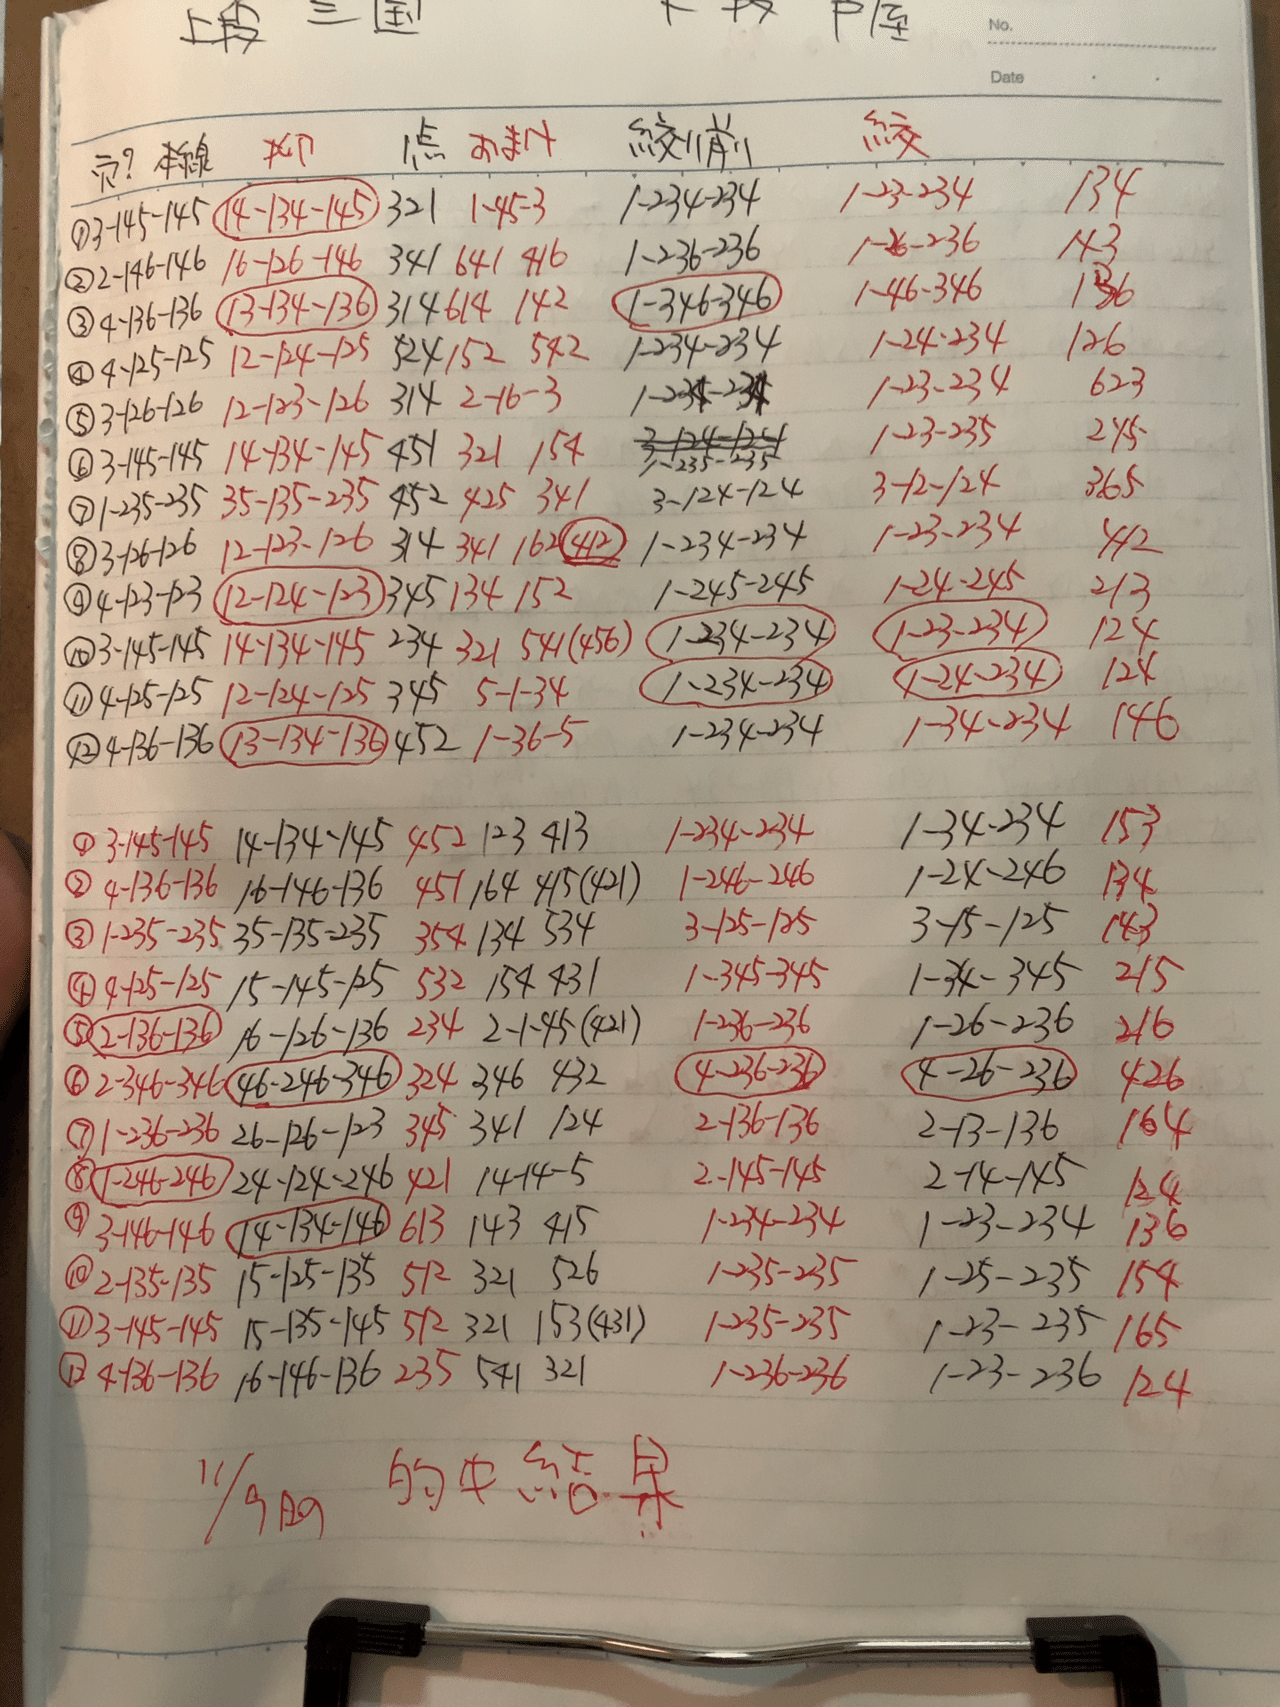 上段 三国 下段 芦屋
No.
Date
穴? 本線 点 おまけ 絞り前 絞
①3-145-145 14-134-145 321 1-45-3 1-234-234 1-23-234 134
②2-146-146 16-126-146 341 641 416 1-236-236 1-26-236 143
③4-136-136 13-134-136 314 614 142 1-346-346 1-46-346 136
④4-125-125 12-124-125 524 152 542 1-234-234 1-24-234 126
⑤3-126-126 12-123-126 314 2-16-3 1-234-234 1-23-234 623
⑥3-145-145 14-134-145 451 321 154 1-235-235 1-23-235 245
⑦1-235-235 35-135-235 452 425 341 3-124-124 3-12-124 365
⑧3-126-126 12-123-126 314 341 162 412 1-234-234 1-23-234 412
⑨4-123-123 12-124-123 345 134 152 1-245-245 1-24-245 213
⑩3-145-145 14-134-145 234 321 541(456) 1-234-234 1-23-234 124
⑪4-125-125 12-124-125 345 5-1-34 1-234-234 1-24-234 124
⑫4-136-136 13-134-136 452 1-36-5 1-234-234 1-34-234 146
①3-145-145 14-134-145 452 123 413 1-234-234 1-34-234 153
②4-136-136 16-146-136 451 164 415(421) 1-246-246 1-24-246 134
③1-235-235 35-135-235 354 134 534 3-125-125 3-15-125 143
④4-125-125 15-145-125 532 154 431 1-345-345 1-34-345 215
⑤2-136-136 16-126-136 234 2-1-45(421) 1-236-236 1-26-236 216
⑥2-346-346 46-246-346 324 346 432 4-236-236 4-26-236 426
⑦1-236-236 26-126-123 345 341 124 2-136-136 2-13-136 164
⑧1-246-246 24-124-246 421 14-14-5 2-145-145 2-14-145 124
⑨3-146-146 14-134-146 613 143 415 1-234-234 1-23-234 136
⑩2-135-135 15-125-135 512 321 526 1-235-235 1-25-235 154
⑪3-145-145 15-135-145 512 321 153(431) 1-235-235 1-23-235 165
⑫4-136-136 16-146-136 235 541 321 1-236-236 1-23-236 124
11/9 的中結果